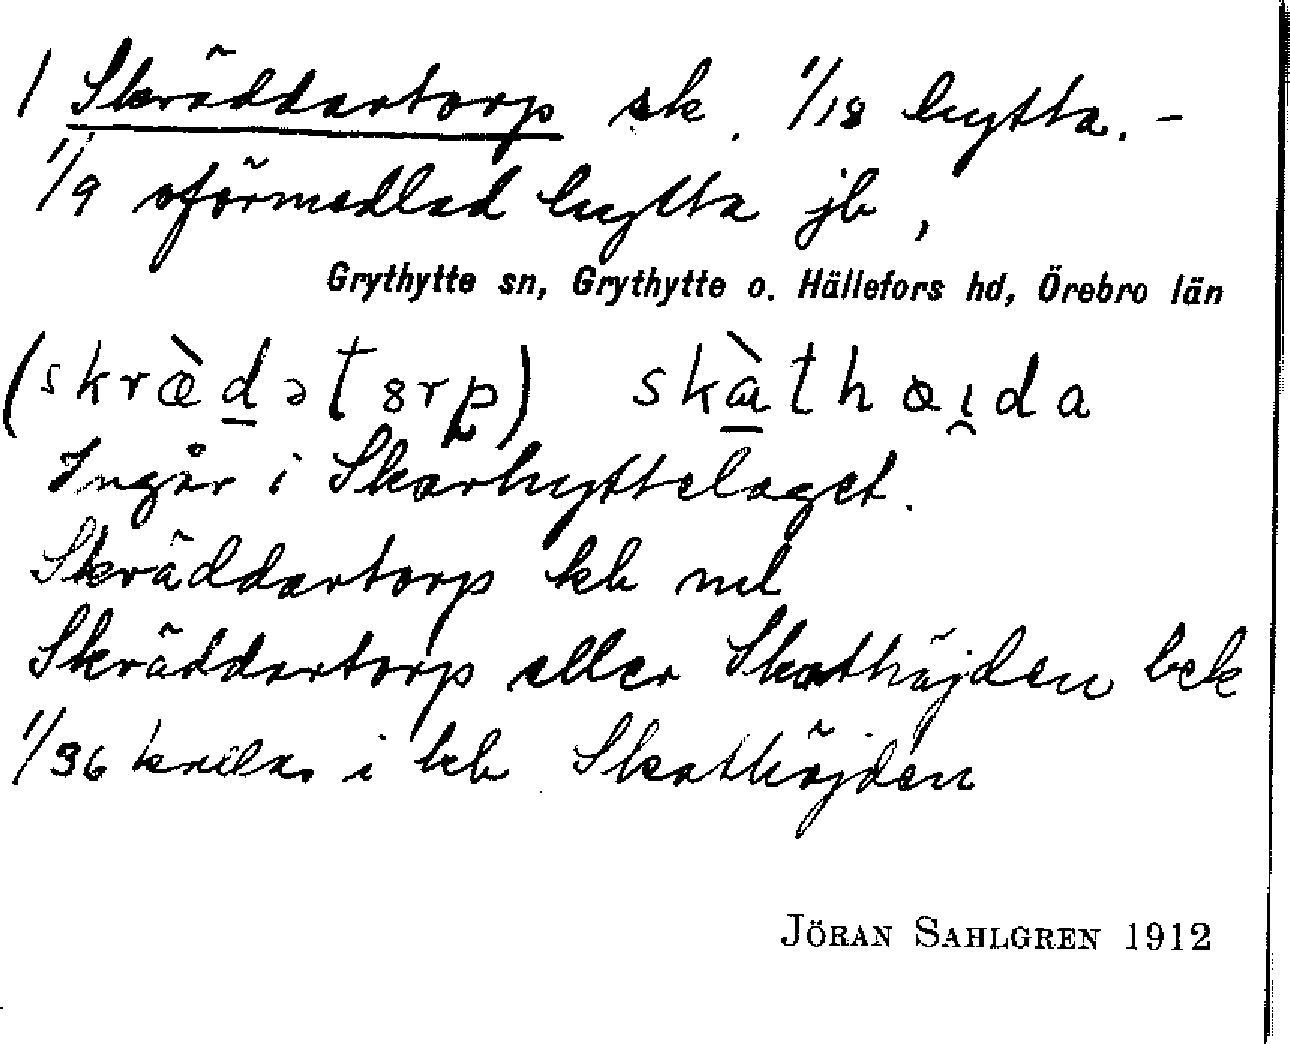 / Skräddartorp sk. 1/18 hytta. -
1/9 oförmedlad hytta jb,
Grythytte sn, Grythytte o. Hällefors hd, Örebro län
(skræ̀d̲ətȣrp) skàthœi̯da
Ingår i Skarhyttelaget.
Skräddartorp kb
Skräddartorp eller Skathöjden bek
1/36 kallas i kb Skathöjden
JÖRAN SAHLGREN 1912